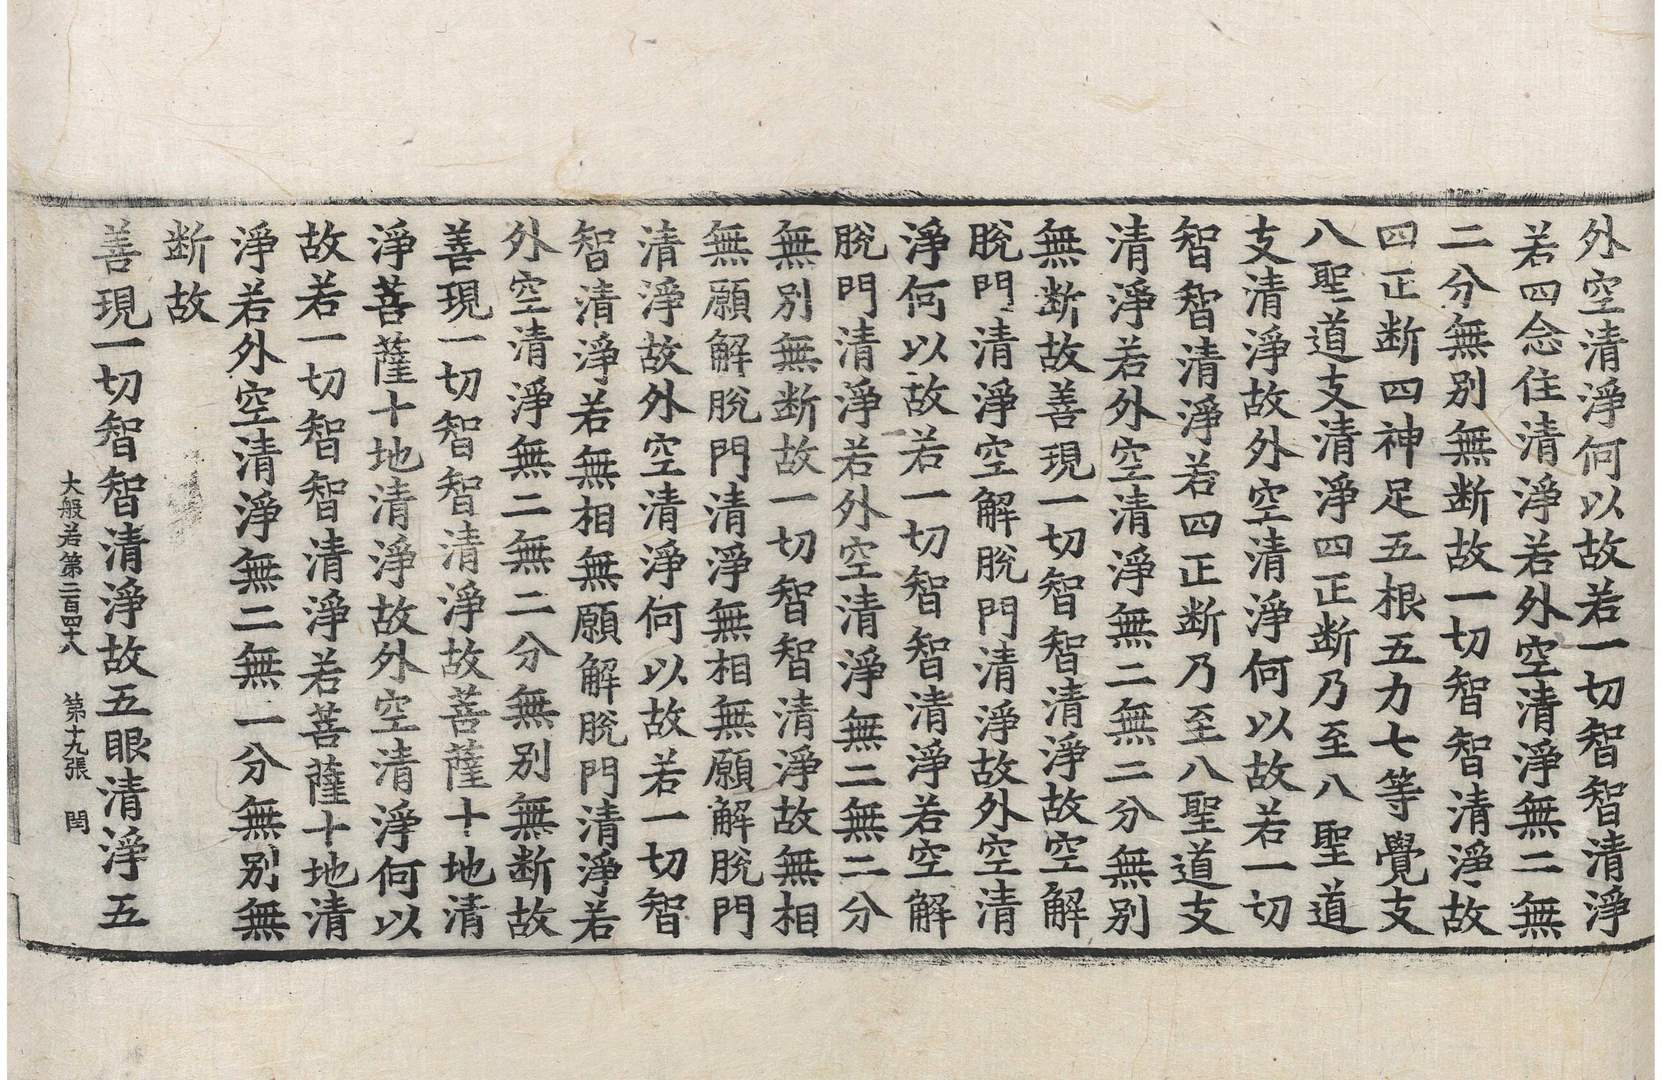 外空清淨何以故若一切智智清淨
若四念住清淨若外空清淨無二無
二分無別無断故一切智智清淨故
四正断四神足五根五力七等覺支
八聖道支清淨四正断乃至八聖道
支清淨故外空清淨何以故若一切
智智清淨若四正断乃至八聖道支
清淨若外空清淨無二無二分無別
無断故善現一切智智清淨故空解
脫門清淨空解脫門清淨故外空清
淨何以故若一切智智清淨若空解
脫門清淨若外空清淨無二無二分
無別無断故一切智智清淨故無相
無願解脫門清淨無相無願解脫門
清淨故外空清淨何以故若一切智
智清淨若無相無願解脫門清淨若
外空清淨無二無二分無別無断故
善現一切智智清淨故菩薩十地清
淨菩薩十地清淨故外空清淨何以
故若一切智智清淨若菩薩十地清
淨若外空清淨無二無二分無別無
断故
善現一切智智清淨故五眼清淨五
大般若第二百四十八 第十九張 閏